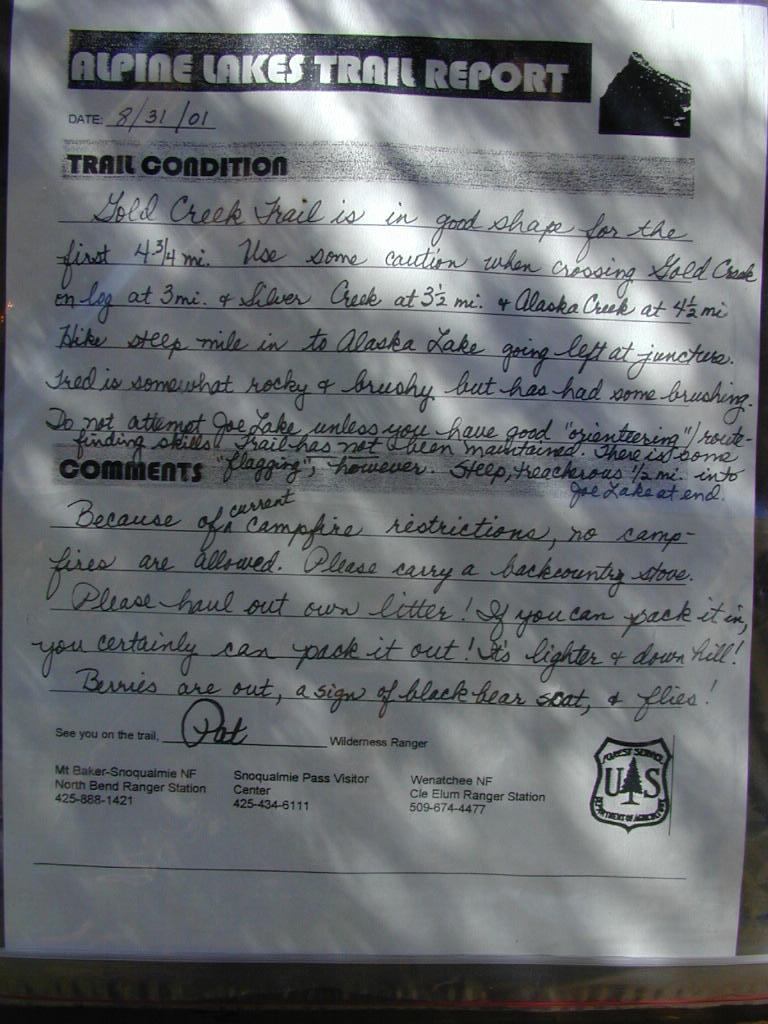 ALPINE LAKES TRAIL REPORT
DATE: 8/31/01
TRAIL CONDITION
Gold Creek Trail is in good shape for the
first 4 3/4 mi. Use some caution when crossing Gold Creek
on log at 3 mi. & Silver Creek at 3 1/2 mi. & Alaska Creek at 4 1/2 mi
Hike steep mile in to Alaska Lake going left at juncture.
Tred is somewhat rocky & brushy but has had some brushing.
Do not attempt Joe Lake unless you have good "orienteering"/route-
finding skills! Trail has not been maintained. There is some
COMMENTS "flagging", however. Steep, treacherous 1/2 mi. into
Joe Lake at end.
Because of current campfire restrictions, no camp-
fires are allowed. Please carry a backcountry stove.
Please haul out own litter! If you can pack it in,
you certainly can pack it out! It's lighter & down hill!
Berries are out, a sign of black bear scat, & flies!
See you on the trail, Pat Wilderness Ranger
Mt Baker-Snoqualmie NF
North Bend Ranger Station
425-888-1421
Snoqualmie Pass Visitor
Center
425-434-6111
Wenatchee NF
Cle Elum Ranger Station
509-674-4477
FOREST SERVICE
U S
DEPARTMENT OF AGRICULTURE